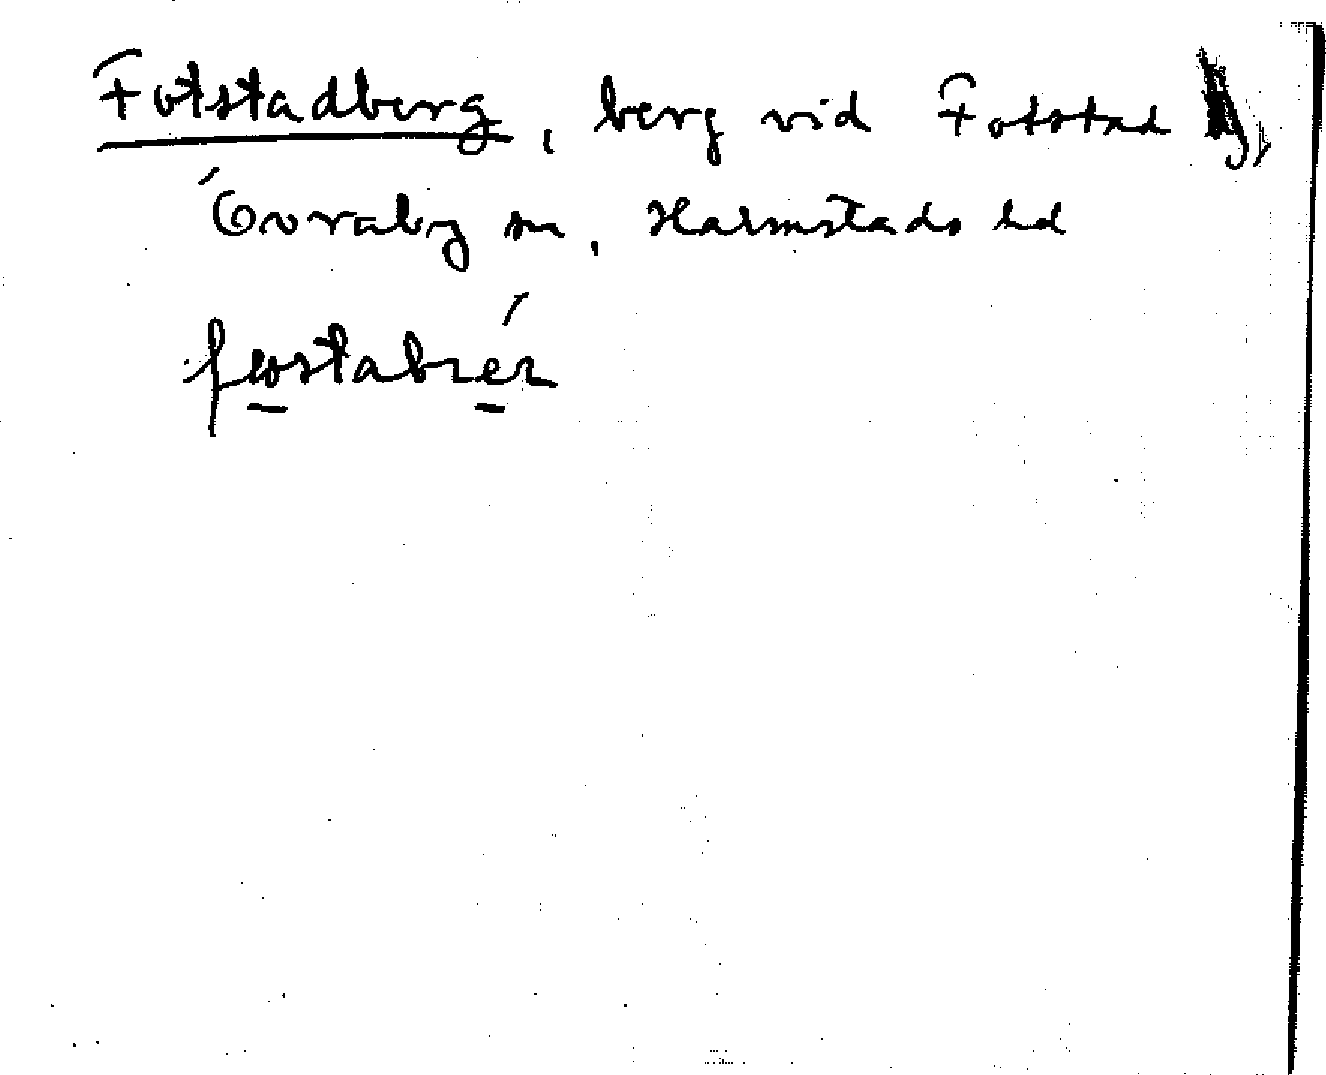 Fotstadberg, berg vid Fotstad
Övraby sn, Halmstads hd